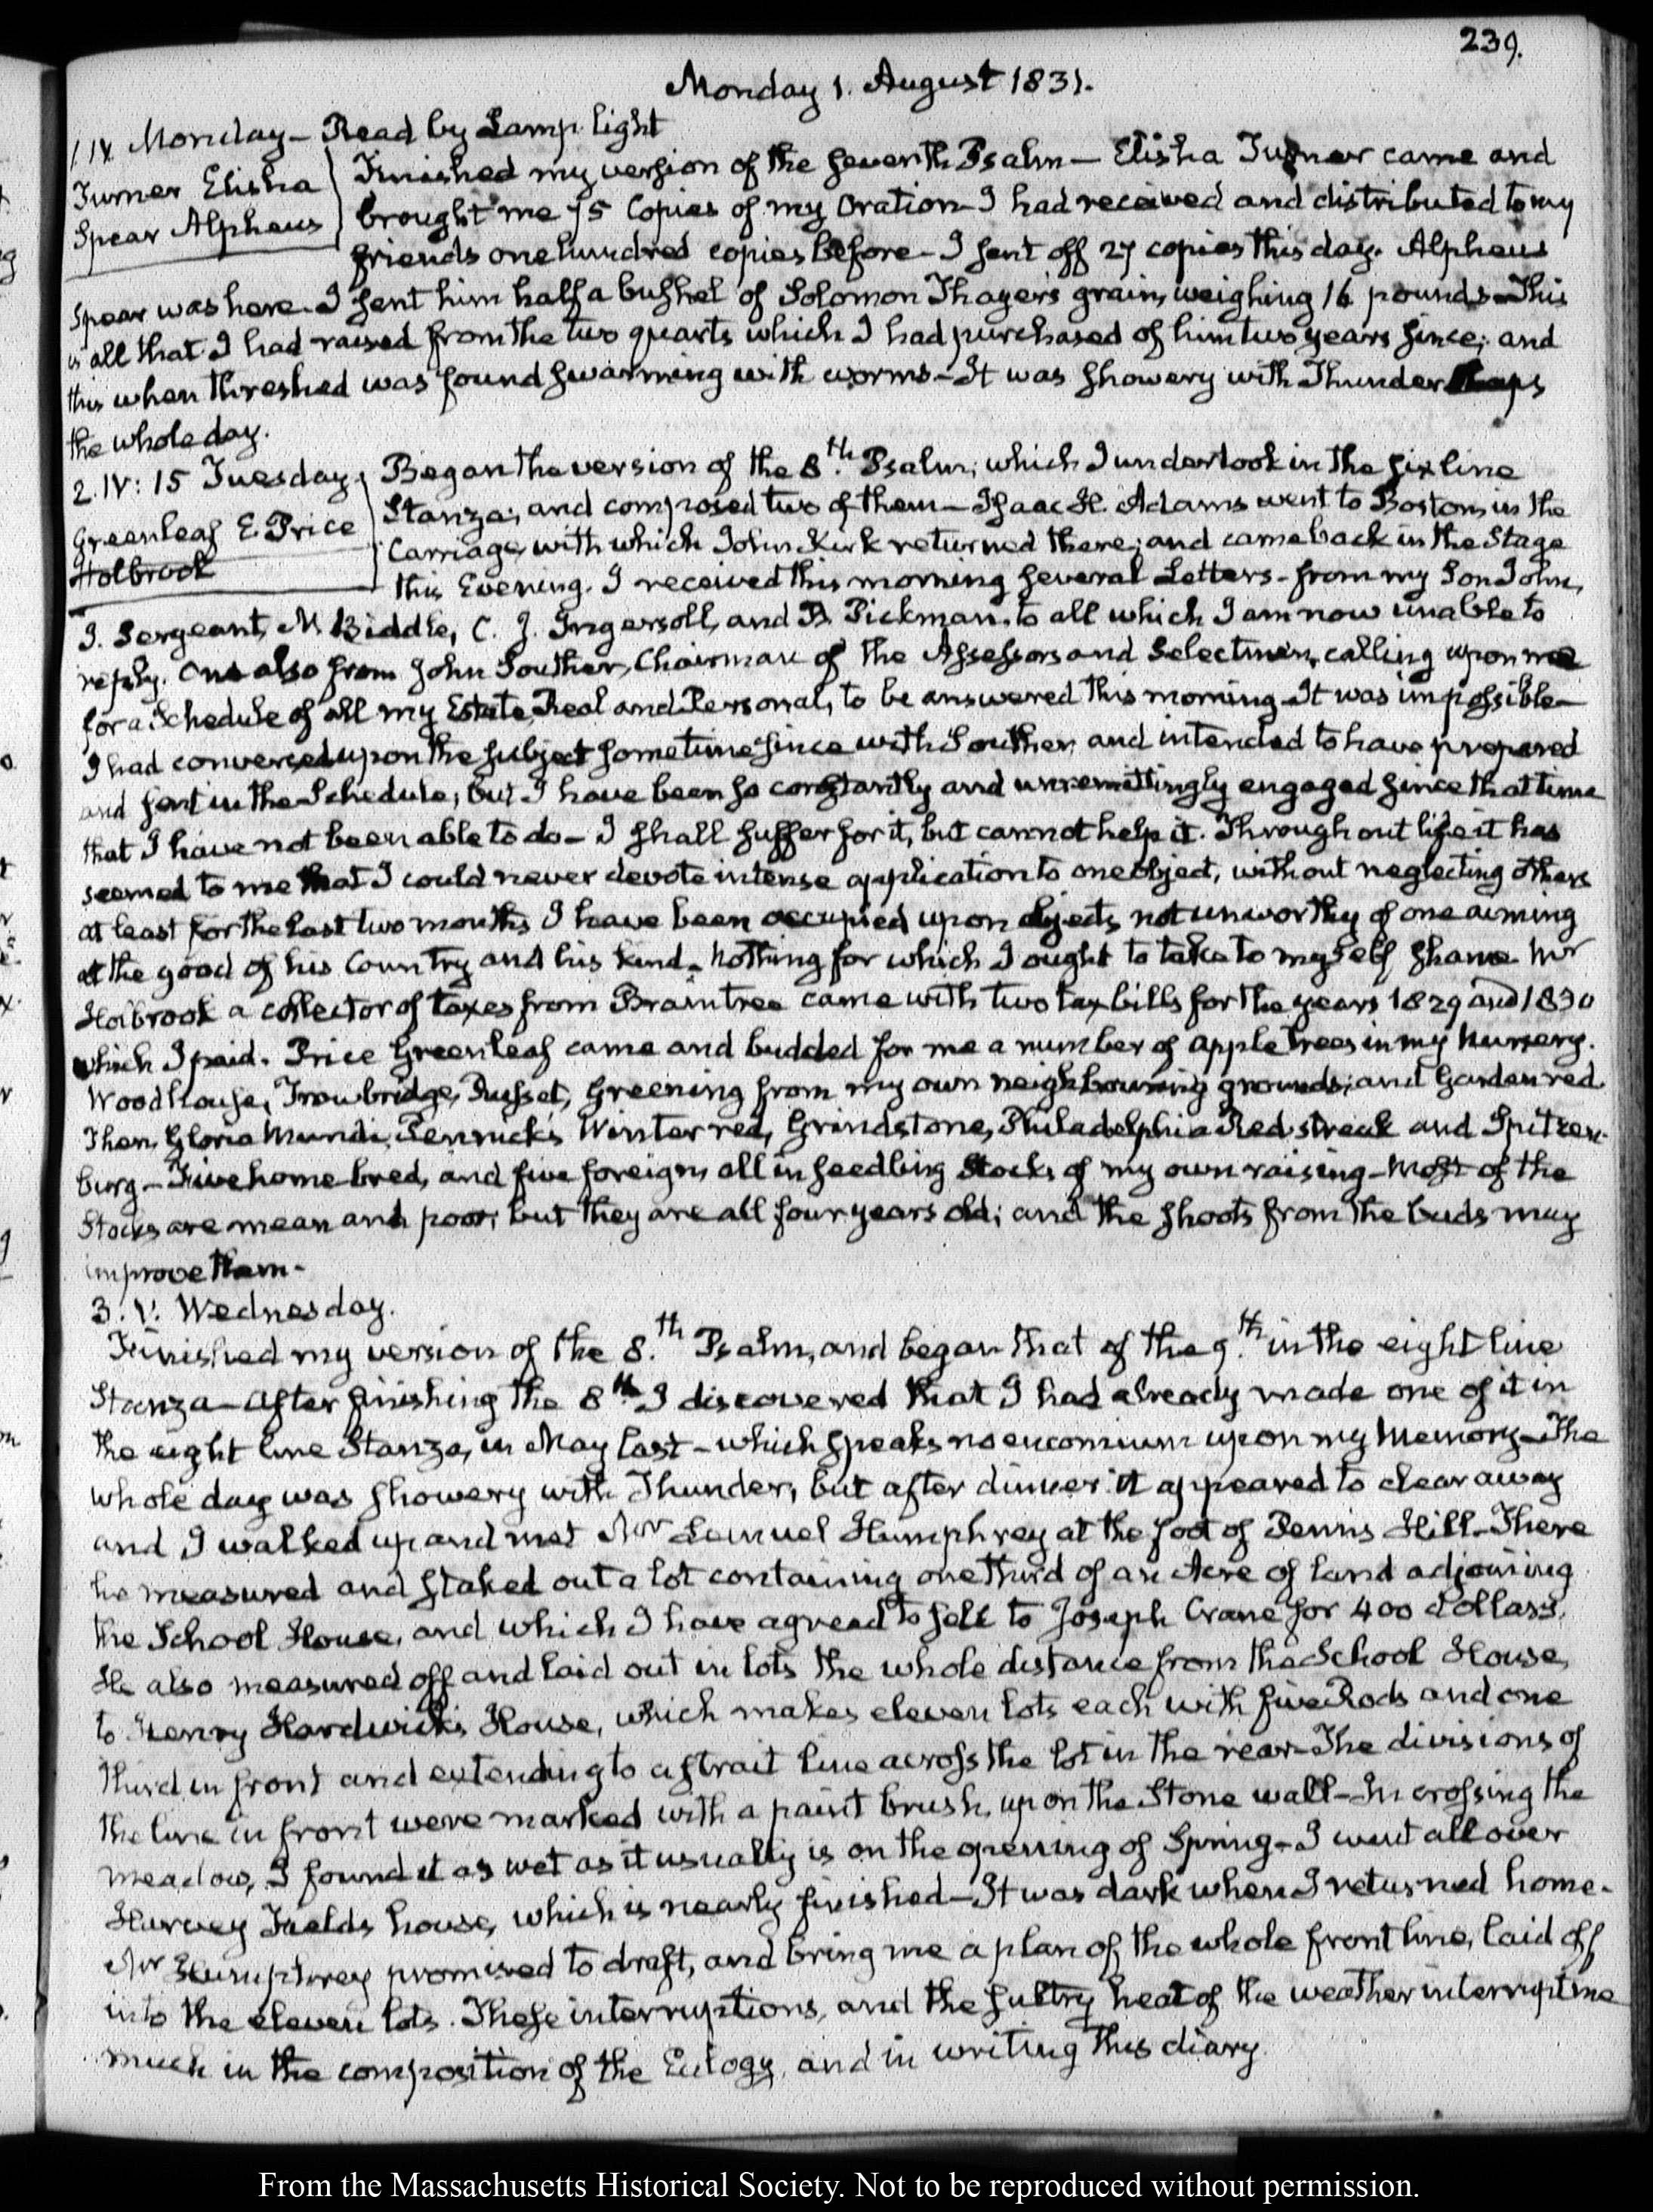 239.
Monday 1. August 1831.
1. IV. Monday — Read by Lamp light
Turner Elisha
Spear Alpheus
Finished my version of the seventh Psalm — Elisha Turner came and
brought me 75 Copies of my Oration — I had received and distributed to my
friends one hundred copies before — I sent off 27 copies this day. Alpheus
Spear was here. I sent him half a bushel of Solomon Thayer's grain, weighing 16 pounds — This
is all that I had raised from the two quarts which I had purchased of him two years since; and
this when threshed was found swarming with worms — It was showery with Thunder
the whole day.
2. IV: 15 Tuesday.
Greenleaf E. Price
Holbrook
Began the version of the 8.th Psalm, which I undertook in the six line
Stanza; and composed two of them — Isaac H. Adams went to Boston, in the
Carriage, with which John Kirk returned there; and came back in the Stage
this Evening. I received this morning several Letters — from my Son John,
J. Sergeant, N. Biddle, C. J. Ingersoll, and B. Pickman, to all which I am now unable to
reply. One also from John Souther, Chairman of the Assessors and Selectmen, calling upon me
for a Schedule of all my Estate, Real and Personal, to be answered this morning — It was impossible —
I had conversed upon the subject sometime since with Souther, and intended to have prepared
and sent in the Schedule; but I have been so constantly and unremittingly engaged since that time
that I have not been able to do — I shall suffer for it, but cannot help it. Throughout life it has
seemed to me that I could never devote intense application to one object, without neglecting others
at least for the last two months I have been occupied upon objects not unworthy of one aiming
at the good of his Country and his kind — Nothing for which I ought to take to myself shame Mr
Holbrook a collector of taxes from Braintree came with two tax bills for the years 1829 and 1830
which I paid. Price Greenleaf came and budded for me a number of apple trees in my Nursery.
Woodhouse, Trowbridge, Russet, Greening from my own neighbouring grounds; and Garden red.
Then, Gloria Mundi, Pennick's Winter red, Grindstone, Philadelphia Red streak and Spitzen-
burg — Five home bred, and five foreign, all in seedling Stocks of my own raising — Most of the
Stocks are mean and poor; but they are all four years old; and the shoots from the buds may
improve them —
3. V. Wednesday.
Finished my version of the 8.th Psalm, and began that of the 9.th in the eight line
Stanza — After finishing the 8th I discovered that I had already made one of it in
the eight line Stanza, in May last — which speaks no encomium upon my Memory — The
whole day was showery with Thunder, but after dinner it appeared to clear away
and I walked up and met Mr Lemuel Humphrey at the foot of Penns Hill — There
he measured and staked out a lot containing one third of an Acre of land adjoining
the School House, and which I have agreed to sell to Joseph Crane for 400 dollars.
He also measured off and laid out in lots the whole distance from the School House,
to Henry Hardwick's House, which makes eleven lots each with five Rods and one
third in front and extending to a strait line across the lot in the rear — The divisions of
the line in front were marked with a paint brush, upon the Stone wall — In crossing the
meadow, I found it as wet as it usually is on the opening of Spring — I went all over
Harvey Fields house, which is nearly finished — It was dark when I returned home.
Mr Humphrey promised to draft, and bring me a plan of the whole front line, laid off
into the eleven lots. These interruptions, and the sultry heat of the weather interrupt me
much in the composition of the Eulogy, and in writing this diary.
From the Massachusetts Historical Society. Not to be reproduced without permission.